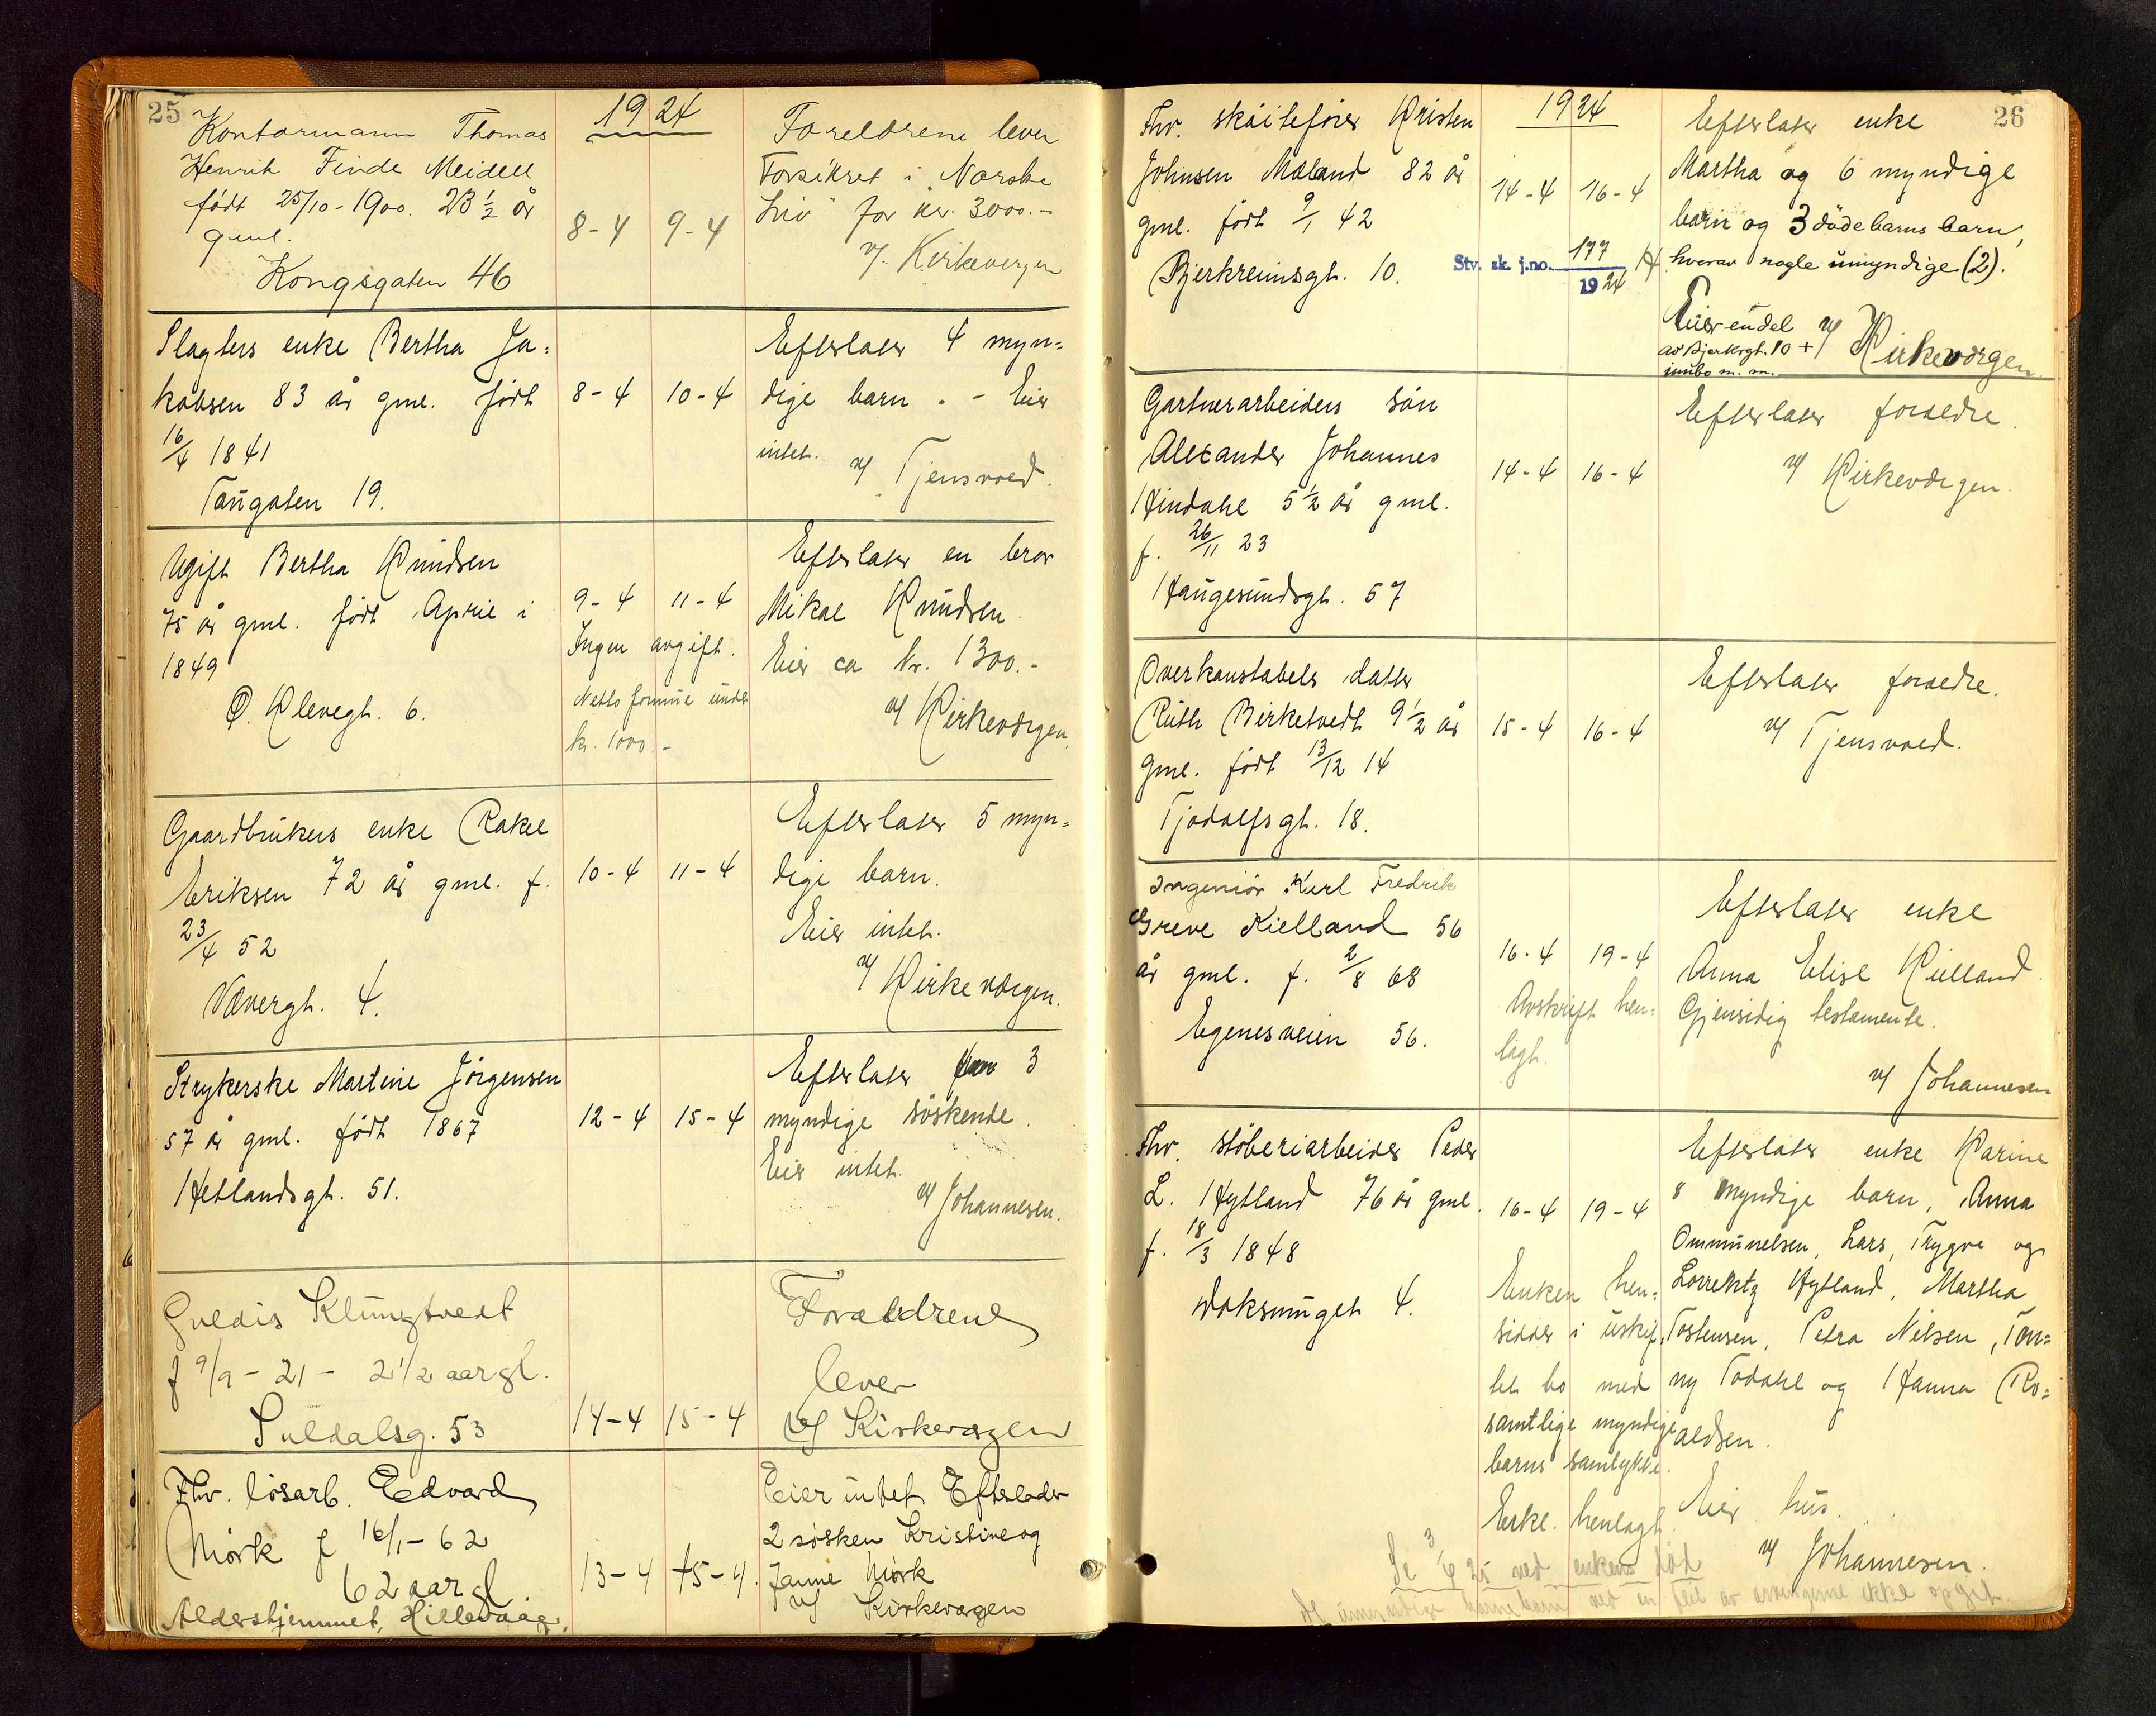 25
1924
Kontormann Thomas
Henrik Finde Meidell
født 25/10-1900. 23 1/2 år
gml.
Kongsgaten 46
8-4 9-4
Foreldrene lever
Forsikret i "Norske
Liv" for kr. 3000.-
v/ Kirkevergen
Slagters enke Bertha Ja-
kobsen 83 år gml. født
16/4 1841
Taugaten 19.
8-4 10-4
Efterlater 4 myn=
dige barn. - Eier
intet.
v/ Tjensvold.
Ugift Bertha Knudsen
75 år gml. født April i
1849
Ø. Klevegt. 6.
9-4 11-4
Ingen avgift.
Netto formue under
kr. 1000.-
Efterlater en bror
Mikal Knudsen.
Eier ca kr. 1300.-
v/ Kirkevergen.
Gaardbrukers enke Rakel
Eriksen 72 år gml. f.
23/4 52
Vævergt. 4.
10-4 11-4
Efterlater 5 myn=
dige barn.
Eier intet.
v/ Kirkevergen.
Strykerske Martine Jørgensen
57 år gml. født 1867
Hetlandsgt. 51.
12-4 15-4
Efterlater 3
myndige søskende.
Eier intet.
v/ Johannesen.
Klungtvedt
f 9/9-21- 2 1/2 aar gl.
Suldalsg. 53
14-4 15-4
Forældrene
lever
v/ Kirkevergen
Fhv. løsarb. Edvard
Mørk f 16/1-62
62 aar gl
Aldershjemmet, Hillevaag.
13-4 15-4.
Eier intet Efterlader
2 søsken Kristine og
Janne Mørk
v/ Kirkevergen
26
1924
Fhv. skøitefører Kristen
Johnsen Maland 82 år
gml. født 9/1 42
Bjerkreimsgt. 10.
14-4 16-4
Stv. sk. j.no. 177
1924
Efterlater enke
Martha og 6 myndige
barn og 3 døde barns barn,
hvorav nogle umyndige (2).
Eier en del
av Bjerkrgt. 10 +
innbo m. m.
v/ Kirkevergen.
Gartnerarbeiders søn
Alexander Johannes
Hindahl 5 1/2 år gml.
f. 26/11 23
Haugesundsgt. 57
14-4 16-4
Efterlater foreldre.
v/ Kirkevergen.
Overkonstabels datter
Ruth Birketvedt 9 1/2 år
gml. født 13/12 14
Tjodolfsgt. 18.
15-4 16-4
Efterlater foreldre.
v/ Tjensvold.
Ingeniør Karl Fredrik
Greve Kielland 56
år gml. f. 2/8 68
Egenesveien 56.
16-4 19-4
Avskrift hen=
lagt.
Efterlater enke
Anna Elise Kielland.
Gjensidig testamente.
v/ Johannesen
Fhv. støberiarbeider Peder
L. Hytland 76 år gml.
f. 18/3 1848
Voksmuget 4.
16-4 19-4
Enken hen=
sidder i uskif=
tet bo med
samtlige myndige
barns samtykke.
Erkl. henlagt.
Efterlater enke Karine
8 myndige barn, Anna
Ommunelsen, Lars, Trygve og
Lorentz Hytland, Martha
Tostensen, Petra Nilsen, Ton=
ny Todahl og Hanna Ro=
aldsen.
Eier hus.
v/ Johannesen.
Se 3/4 25 ved enkens død